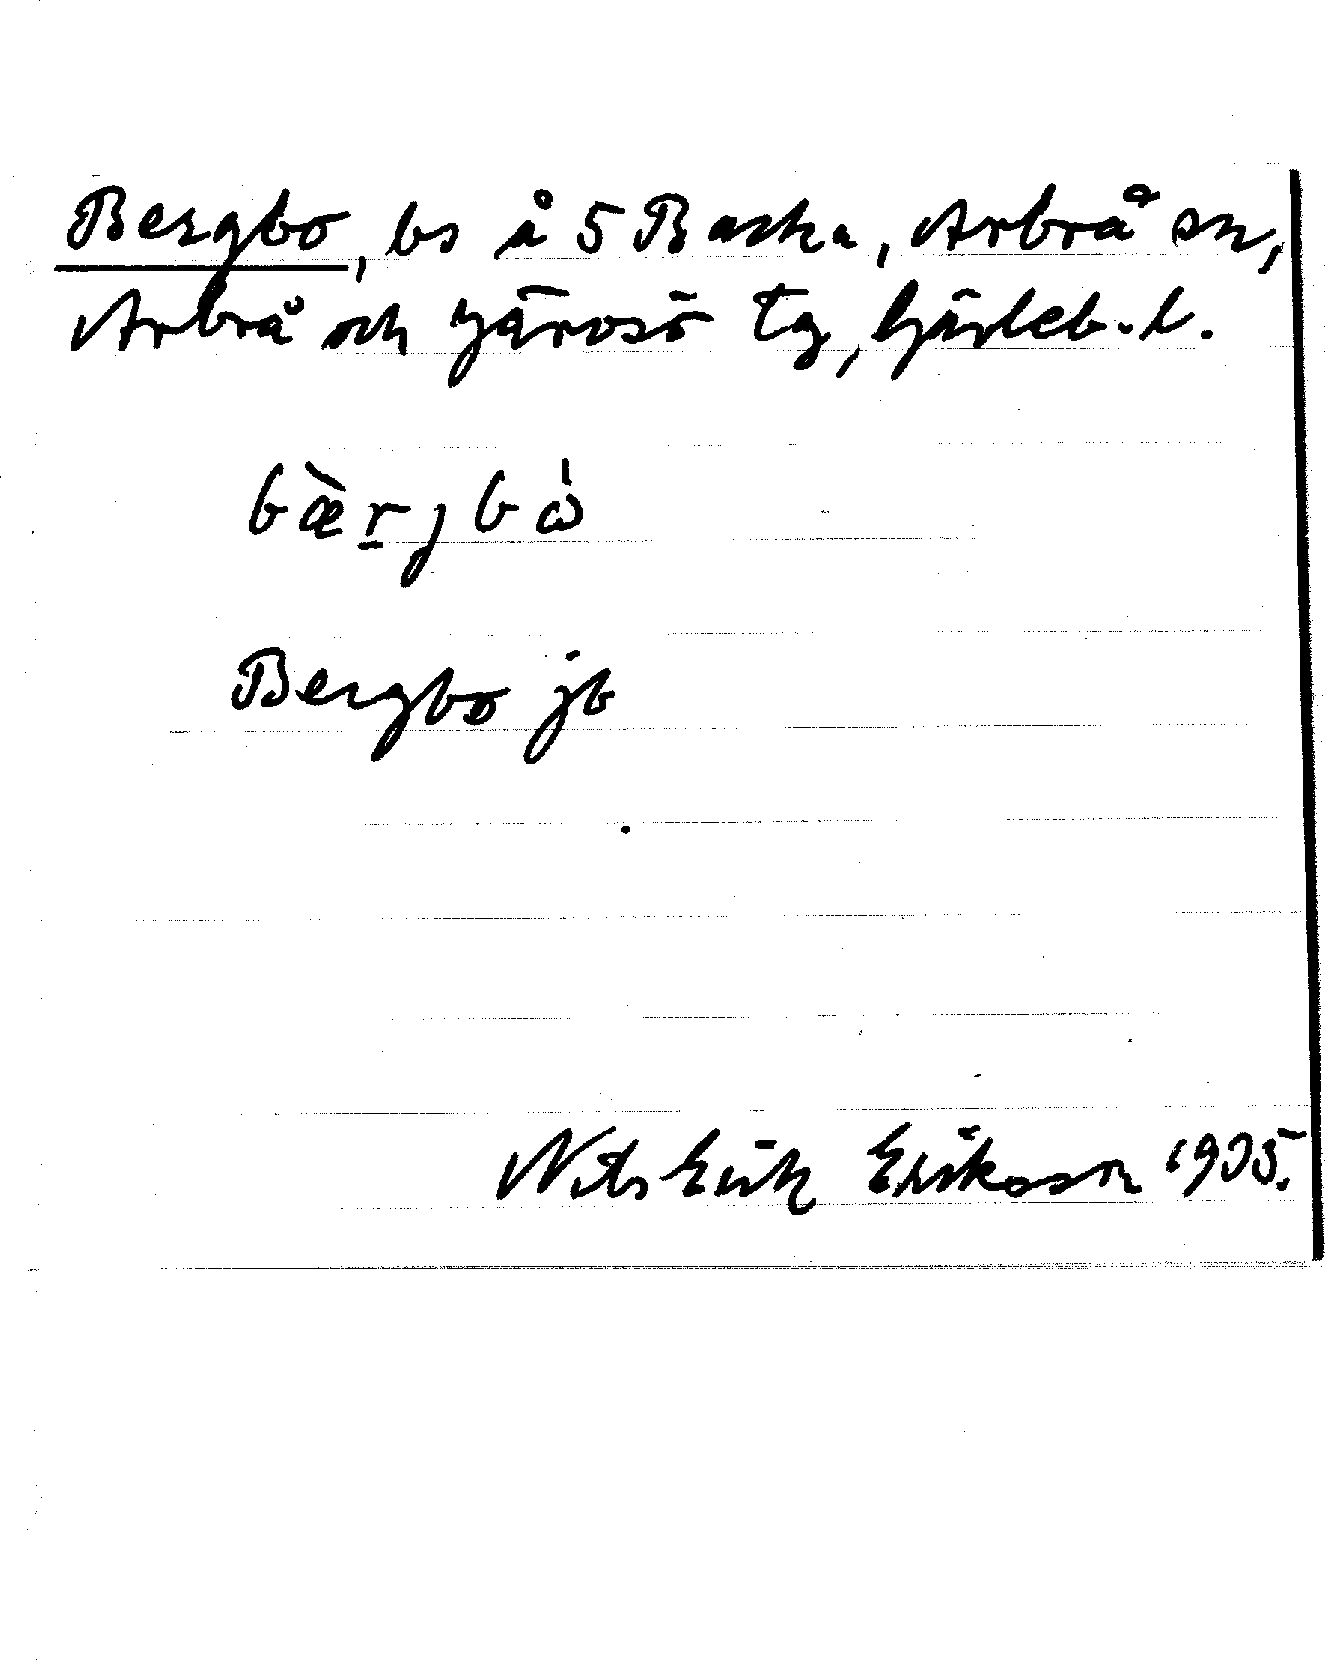 Bergbo, bs å 5 Backa, Arbrå sn,
Arbrå och Järvsö tg, Gävleb. l.
bæ̀r̠jbὼ
Bergbo jb
Nils Erik Eriksson 1935.